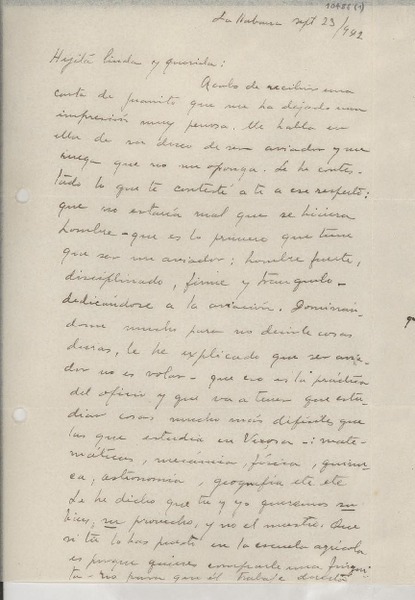 10486 (1)
La Habana sept 23/942
Hijita linda y querida:
Acabo de recibir una
carta de Juanito que me ha dejado una
impresión muy penosa. Me habla en
ella de su deseo de ser aviador y me
ruega que no me oponga. Le he contes-
tado lo que te contesté a ti a ese respecto:
que no estaría mal que se hiciera
hombre - que es lo primero que tiene
que ser un aviador: hombre fuerte,
disciplinado, firme y tranquilo -
dedicándose a la aviación. Dominán-
dome mucho para no decirle cosas
duras, le he explicado que ser avia-
dor no es volar - que eso es la práctica
del oficio y que va a tener que estu-
diar cosas mucho más difíciles que
las que estudia en Viçosa -: mate-
máticas, mecánica, física, quími-
ca, astronomía, geografía etc etc
Le he dicho que tú y yo queremos su
bien, su provecho, y no el nuestro. Que
si tú lo has puesto en la escuela agrícola
es porque quieres comprarle una finqui-
ta - no para que él trabaje